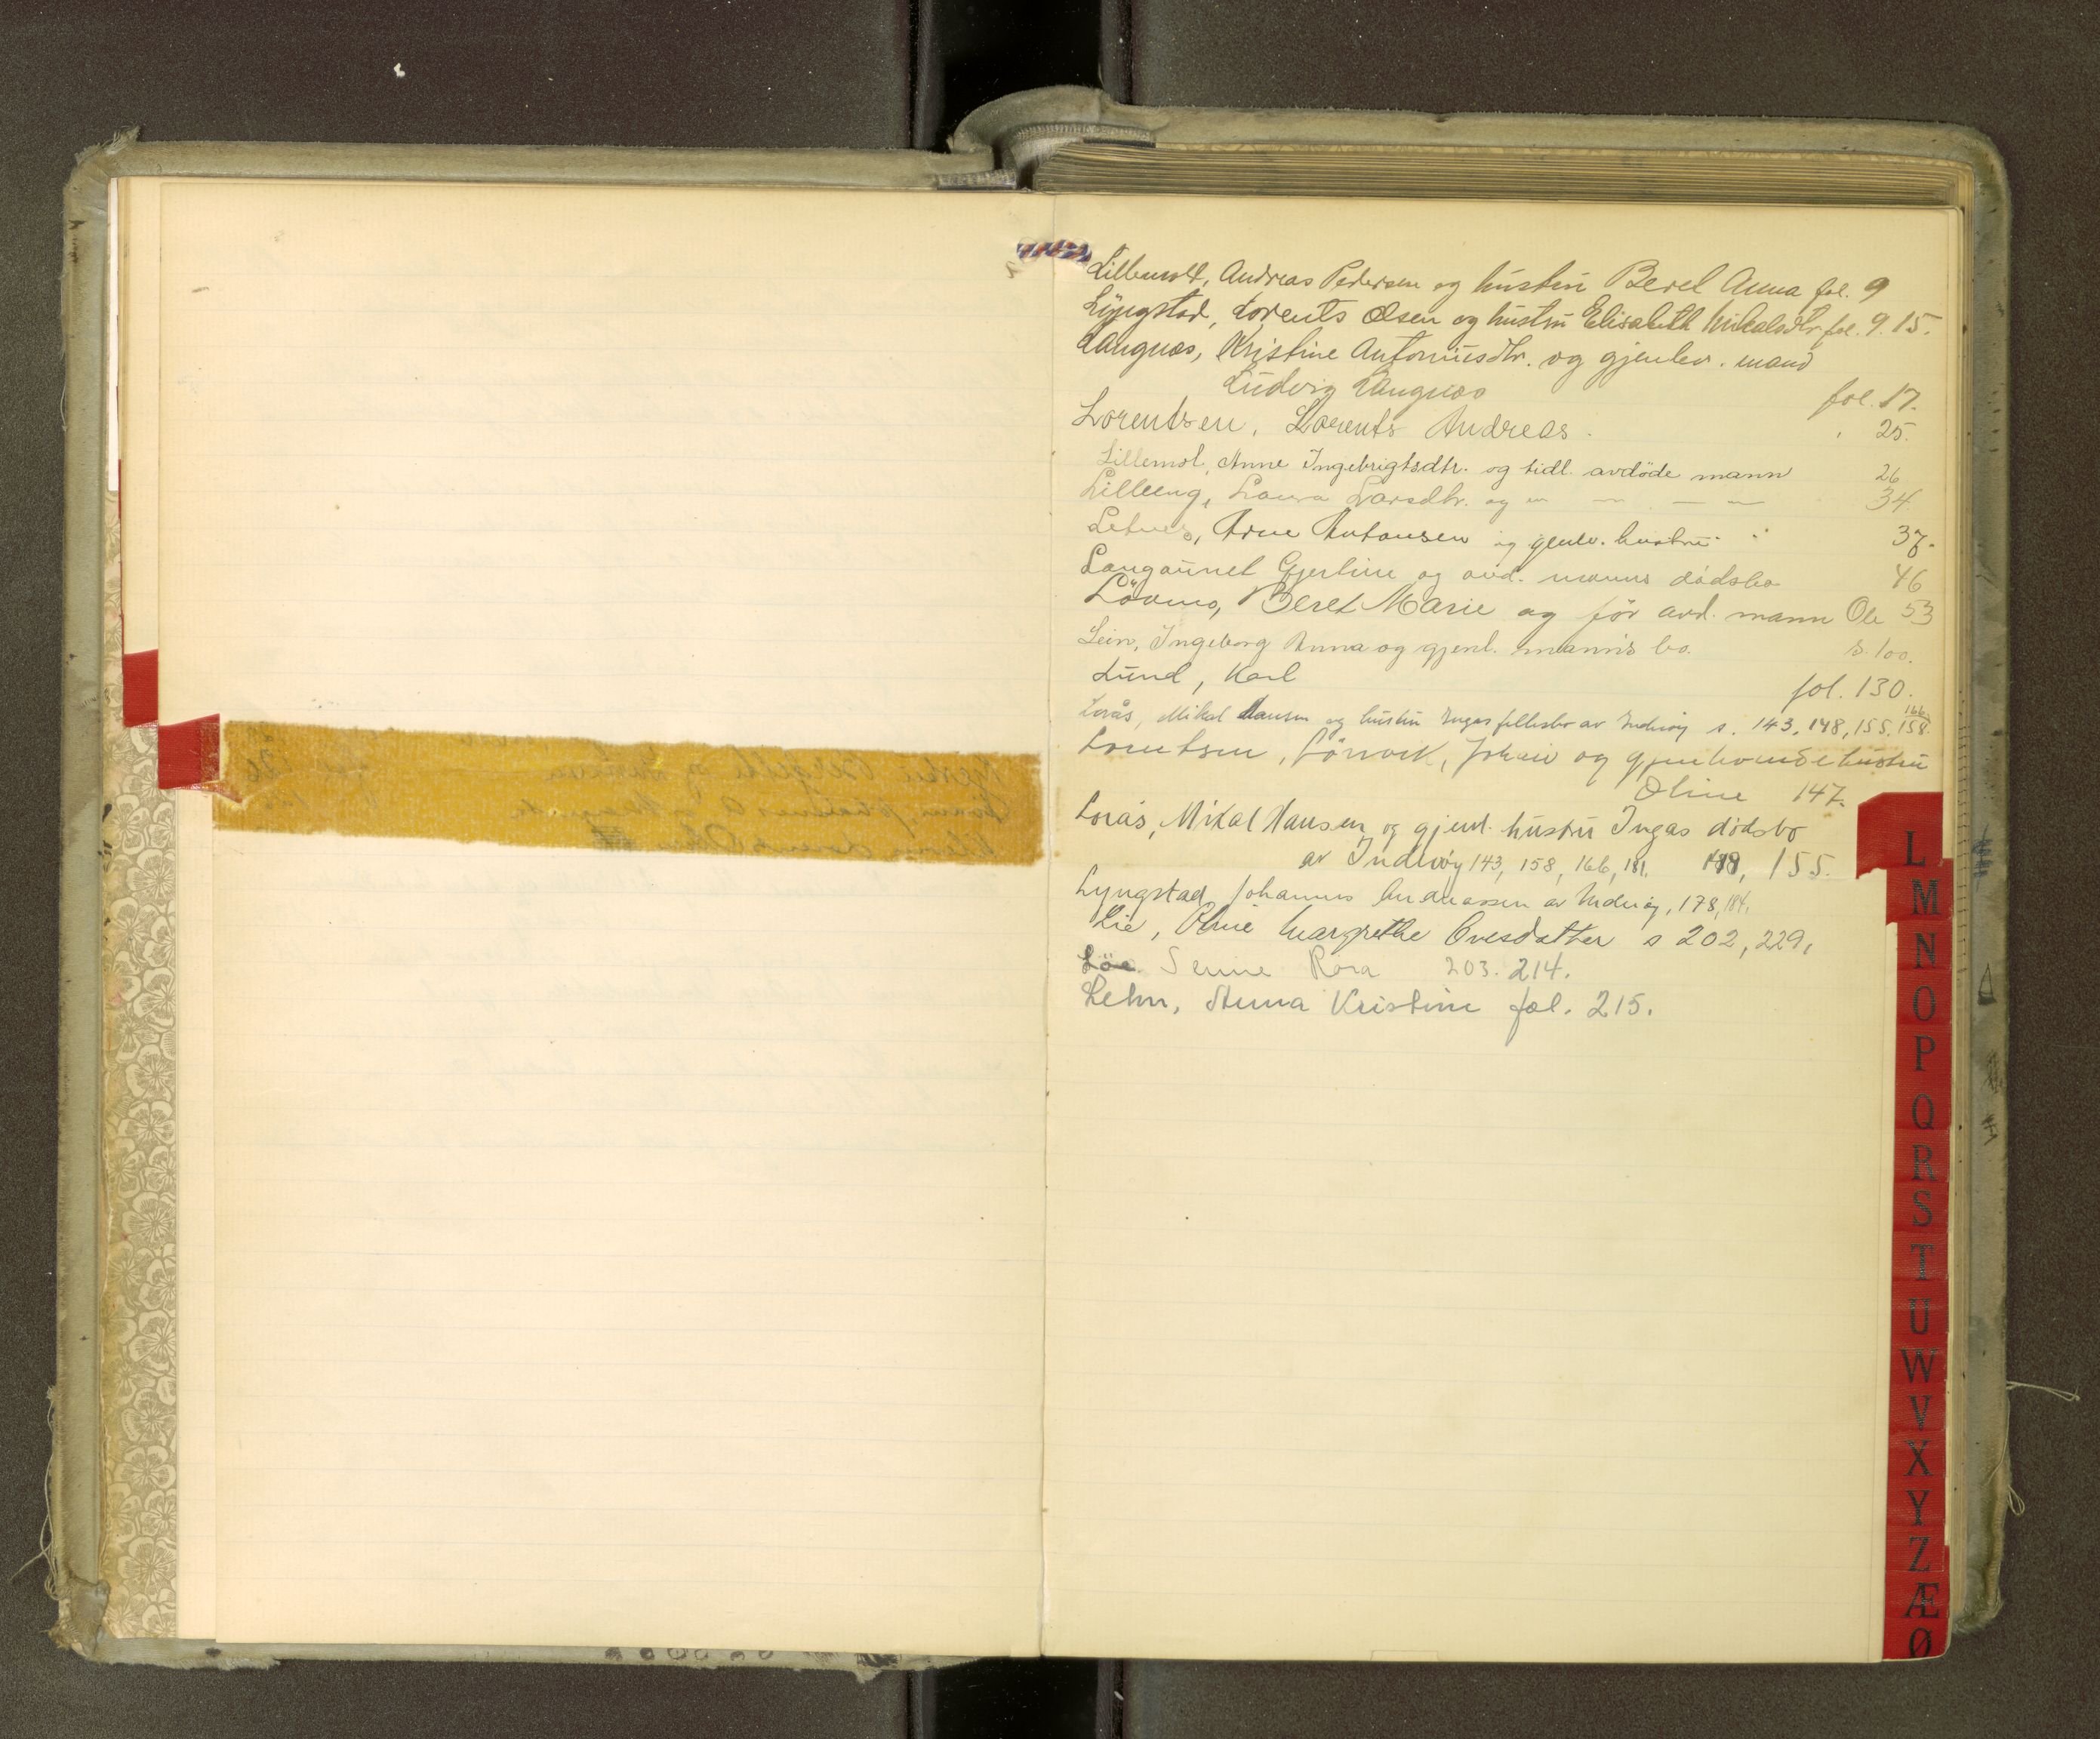 Lillemoll, Andreas Pedersen og hustru Beret Anna fol. 9
Lyngstad, Lorents Olsen og hustru Elisabeth Mikalsdtr fol. 9. 15.
Langnos, Kristine Antoniusdtr. og gjenlev. mand
Ludvig Langnos fol. 17.
Lorentsen, Lorents Andreas. 25.
Lillemol, Anne Ingebrigtsdtr. og tidl. avdöde mann 26
Lilleeng, Laura Larsdtr. og " — — — 34
Letnes, Arne Antonsen og genlev. hustru 37.
Langaunet Gjertine og avd. manns dödsbo 46
Lövmo, Beret Marie og för avd. mann Ole 53
Lein, Ingeborg Anna og gjenl. manns bo. s. 100.
Lund, Karl fol. 130.
Lorås, Mikal Hansen og hustru Ingas fellesbo av Inderöy s. 143, 148, 155, 158. 166
Lorentsen, Johan og gjenlevende hustru
Oline 147.
Lorås, Mikal Hansen og gjenl. hustru Ingas dödsbo
av Inderöy 143, 158, 166, 181. 148, 155.
Lyngstad Johannes Andreassen av Inderöy, 178, 184.
Lie, Oline Margrethe Ovesdatter s 202, 229,
Löe Senne Rora 203. 214.
Lehn, Anna Kristine fol. 215.
L
M
N
O
P
Q
R
S
T
U
W
V
X
Y
Z
Æ
Ø